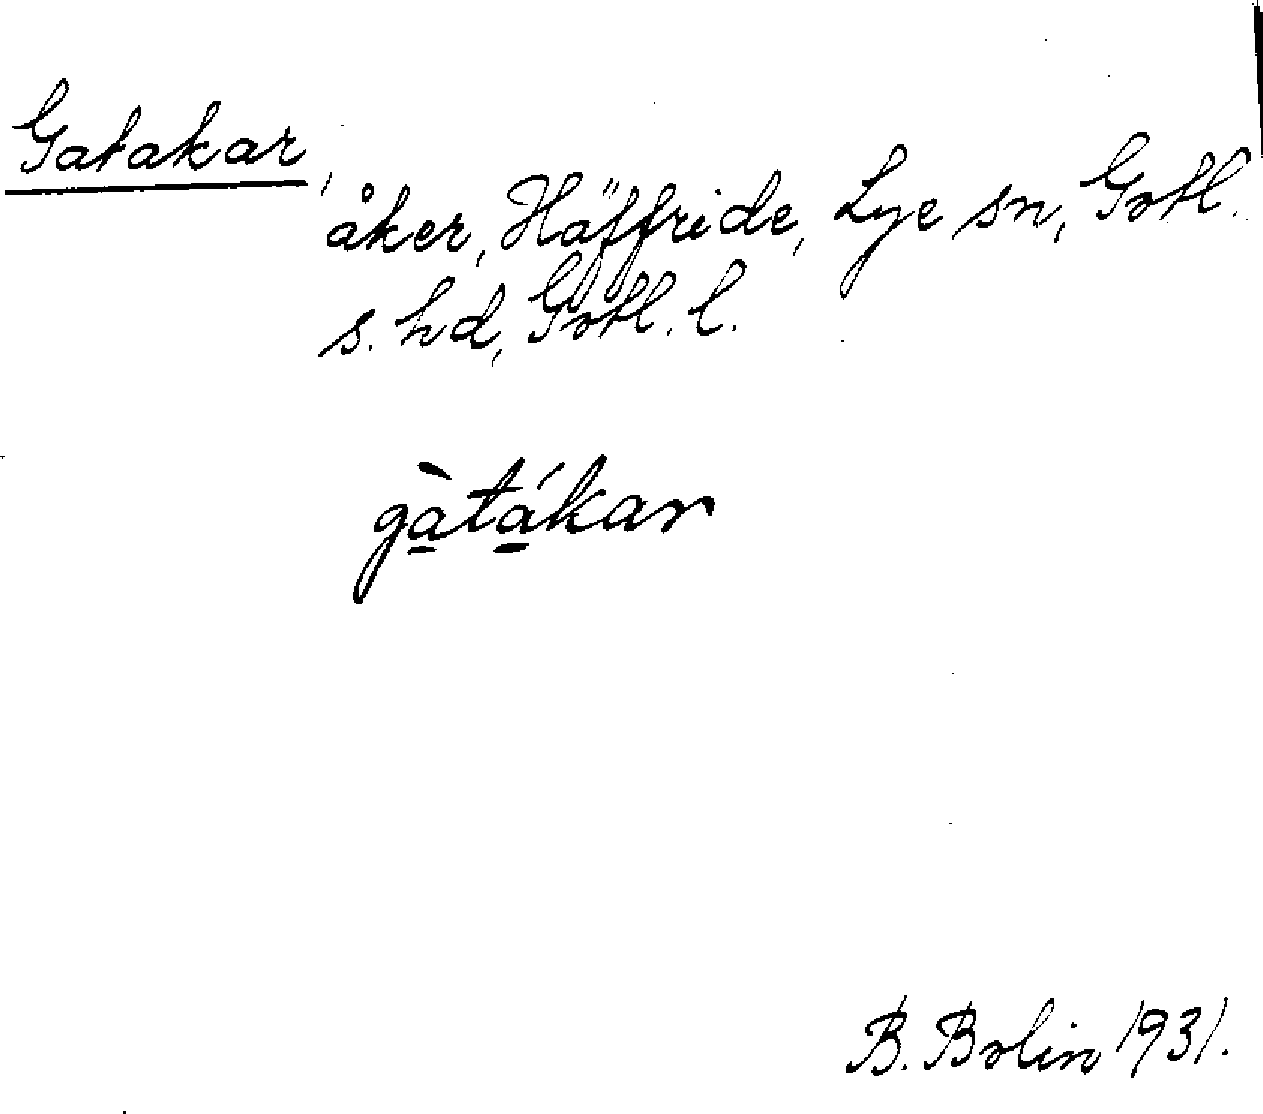 Gatakar,
åker, Häffride, Lye sn, Gotl.
s. hd, Gotl. l.
gà̱tá̱kar
B. Bolin 1931.